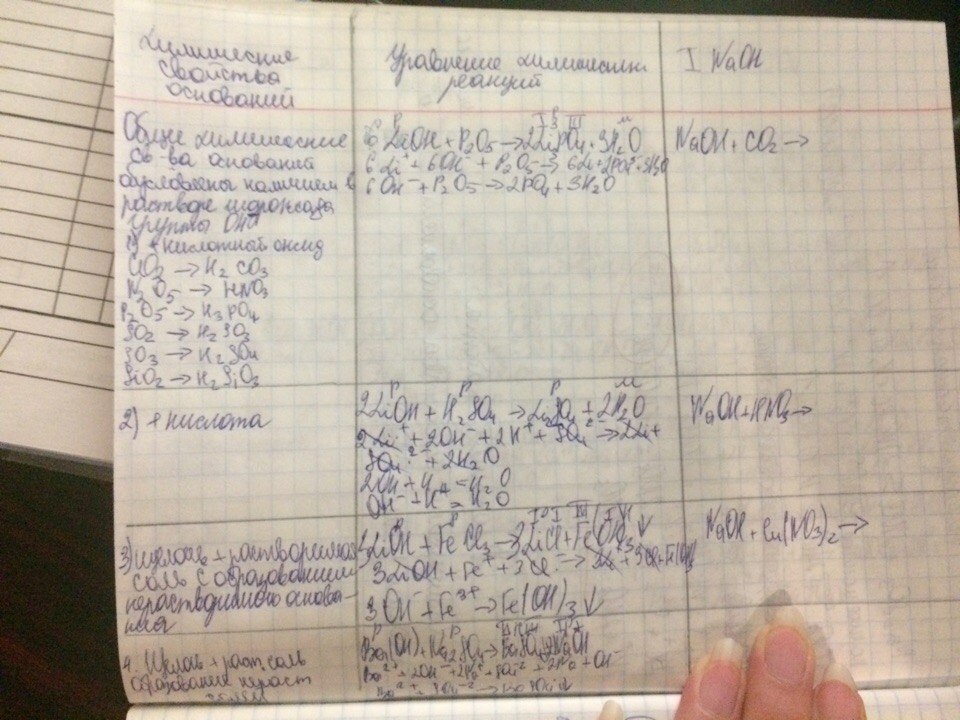 Химические
свойства
оснований
Уравнение химических
реакций
I NaOH
Общие химические
св-ва оснований
обусловлены наличием в
растворе гидроксо
группы OH⁻
1) + кислотный оксид
CO₂ → H₂CO₃
N₂O₅ → HNO₃
P₂O₅ → H₃PO₄
SO₂ → H₂SO₃
SO₃ → H₂SO₄
SiO₂ → H₂SiO₃
6LiOH + P₂O₅ → 2Li₃PO₄ + 3H₂O
6Li⁺ + 6OH⁻ + P₂O₅ → 6Li + 2PO₄ + 3H₂O
6OH⁻ + P₂O₅ → 2PO₄ + 3H₂O
NaOH + CO₂ →
2) + кислота
2LiOH + H₂SO₄ → Li₂SO₄ + 2H₂O
2Li⁺ + 2OH⁻ + 2H⁺ + SO₄²⁻ → 2Li +
SO₄²⁻ + 2H₂O
2OH + H = H₂O
OH⁻ + H⁺ = H₂O
NaOH + HNO₃ →
3) щелочь + растворимая
соль с образованием
нерастворимого основа-
ния
3LiOH + FeCl₃ → 3LiCl + Fe(OH)₃↓
3LiOH + Fe⁺ + 3Cl⁻ → 3Li + 3Cl + Fe(OH)
3OH⁻ + Fe³⁺ → Fe(OH)₃↓
NaOH + Cu(NO₃)₂ →
4. Щелочь + раст. соль
образование нераст
Ba(OH) + Na₂SO₄ → BaSO₄ + NaOH
Ba²⁺ + 2OH⁻ + 2Na⁺ + SO₄²⁻ + 2Na + OH⁻